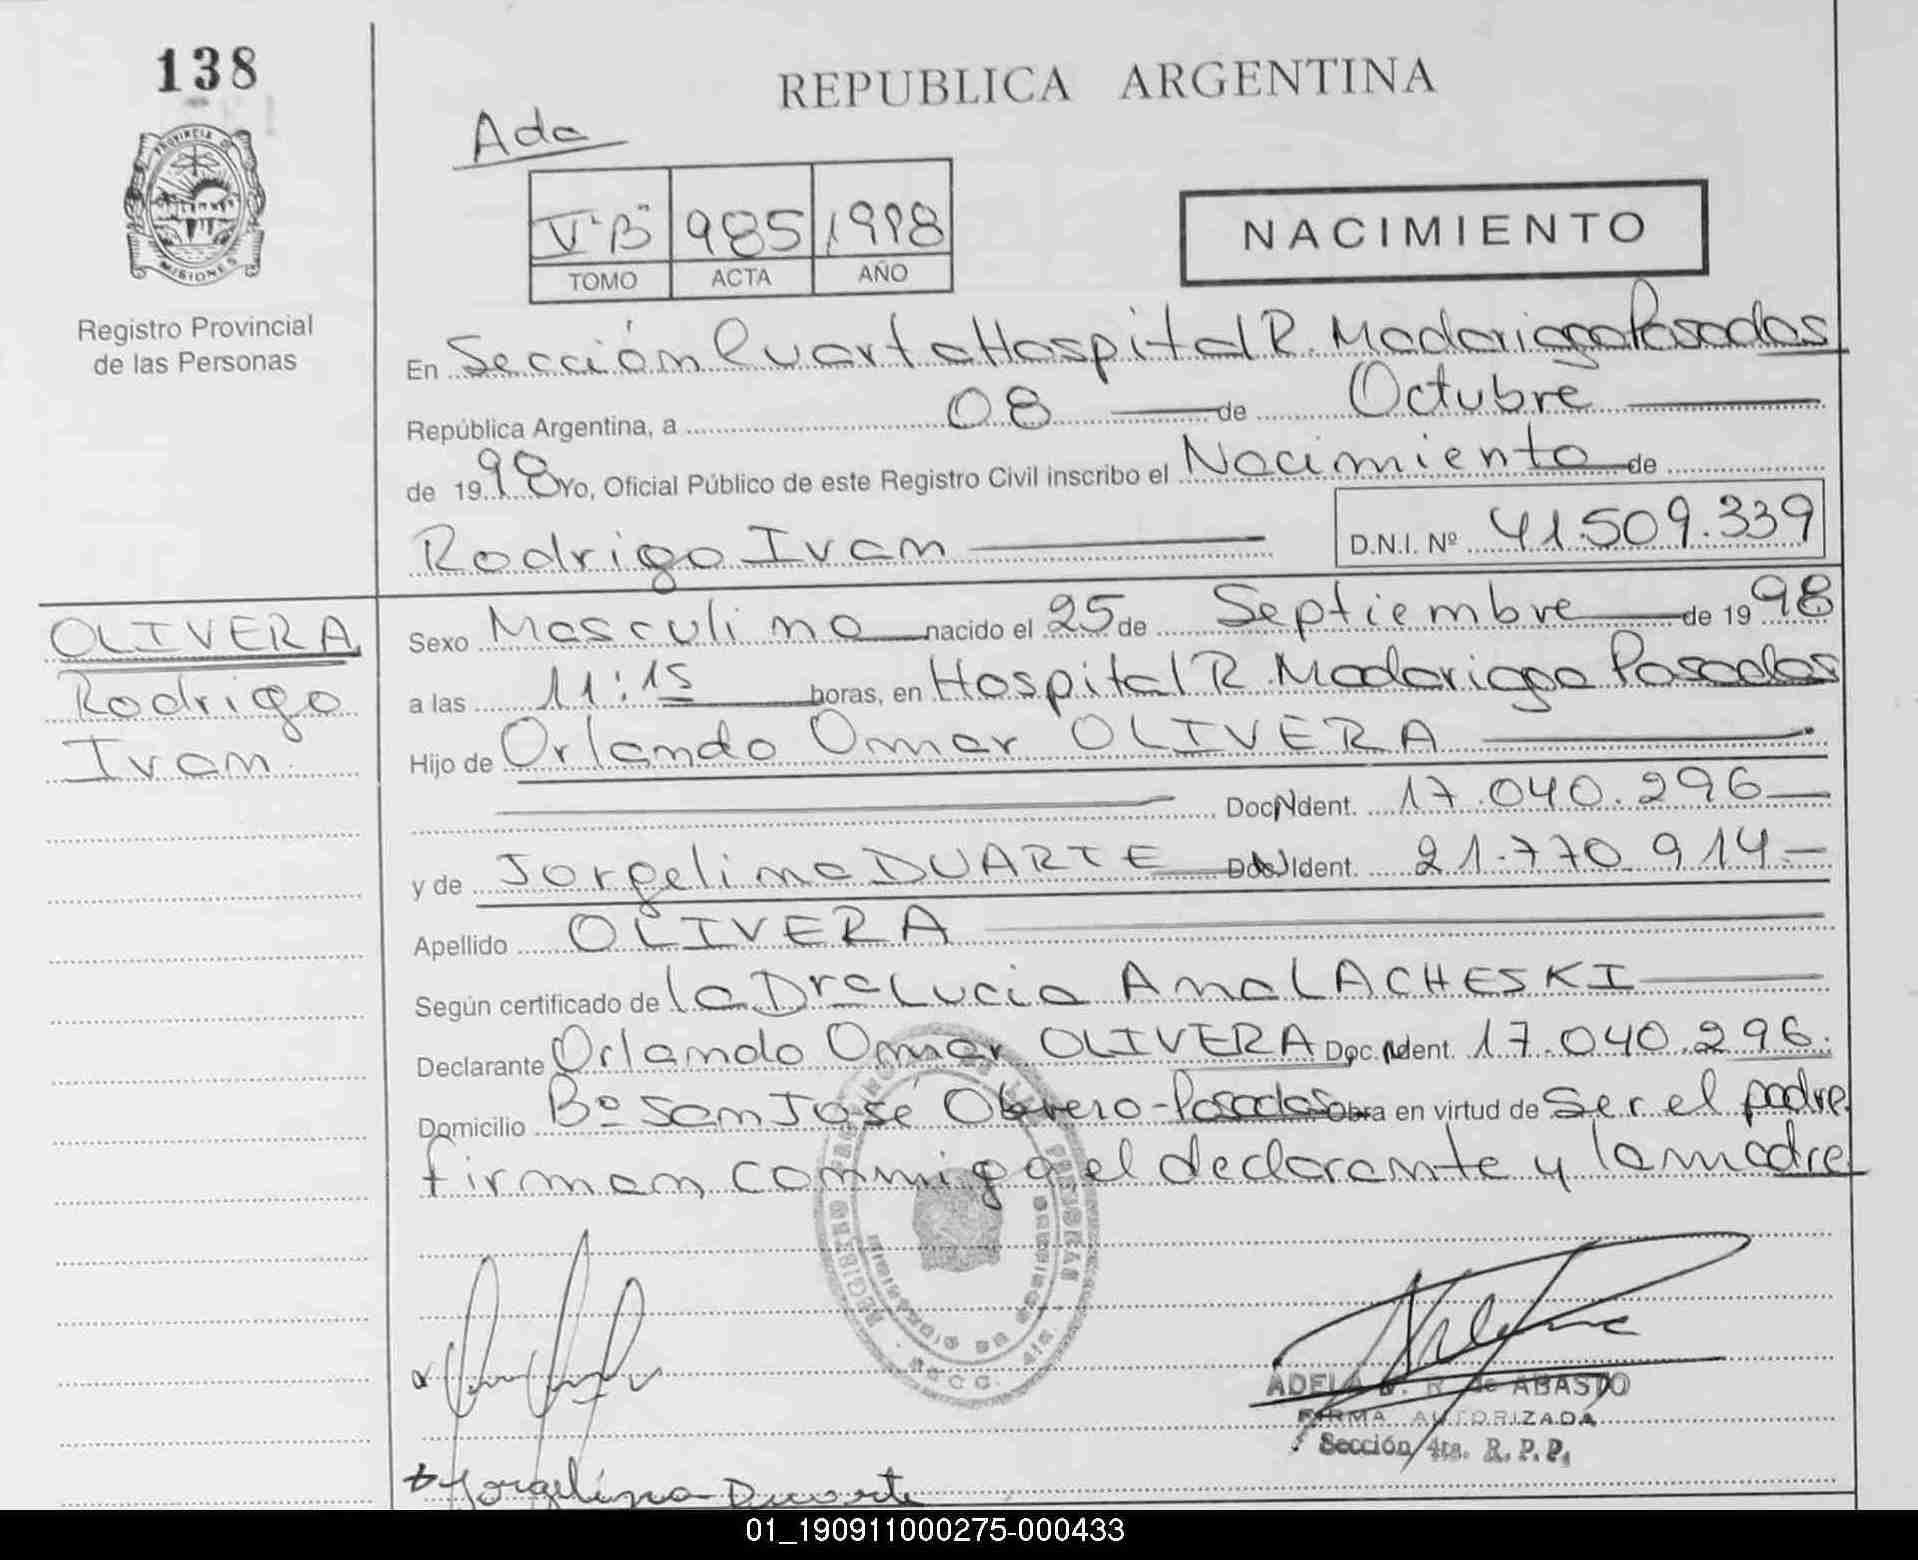 138
REPUBLICA ARGENTINA
Ada
PROVINCIA DE
MISIONES
V "B" 985 1998
TOMO ACTA AÑO
NACIMIENTO
Registro Provincial
de las Personas
En Sección Cuarta Hospital R. Madariaga Posadas
República Argentina, a 08 de Octubre
de 1998 Yo, Oficial Público de este Registro Civil inscribo el Nacimiento de
Rodrigo Ivan D.N.I. Nº 41.509.339
OLIVERA
Rodrigo
Ivan
Sexo Masculino nacido el 25 de Septiembre de 1998
a las 11:15 horas, en Hospital R. Madariaga Posadas
Hijo de Orlando Omar OLIVERA
Doc. Ident. 17.040.296
y de Jorgelina DUARTE Doc. Ident. 21.770.914
Apellido OLIVERA
Según certificado de la Dra Lucia Ana LACHESKI
Declarante Orlando Omar OLIVERA Doc. Ident. 17.040.296.
Domicilio Bº San José Obrero-Posadas Obra en virtud de Ser el padre
firman conmigo el declarante y la madre
ADELA R. de ABASTO
FIRMA AUTORIZADA
Sección 4ta. R. P. P.
Jorgelina Duarte
01_190911000275-000433